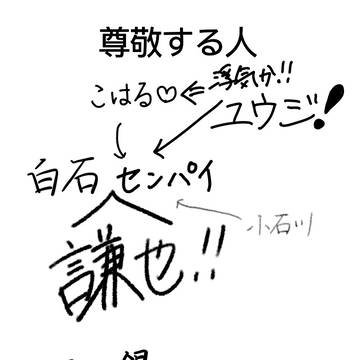 尊敬する人
浮気か!!
こはる♡⇐ ユウジ!
白石 センパイ
小石川
謙也!!